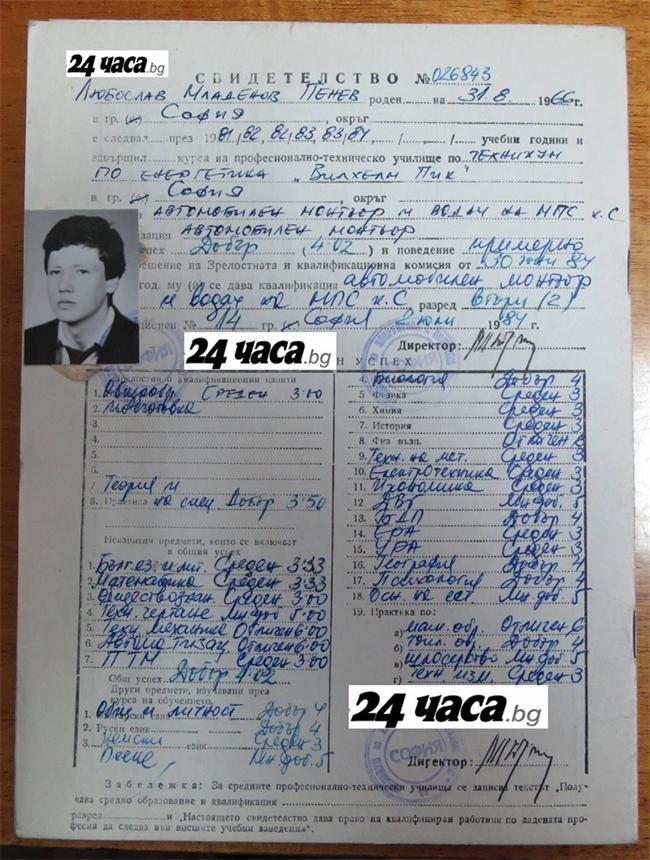 24 часа.bg
СВИДЕТЕЛСТВО №026843
Любослав Младенов Пенев роден на 31.8. 1966 г.
в гр. (с) София окръг
е следвал през 1981/82, 82/83, 83/84, / , / учебни години и
завършил курса на професионално-техническо училище по Техникум
по енергетика „Вилхелм Пик“
в гр. (с) София , окръг
автомобилен монтьор и водач на МПС к. С
автомобилен монтьор
успех Добър (4.02) и поведение примерно
решение на Зрелостната и квалификационна комисия от 30 юни 84
год. му (й) се дава квалификация автомобилен монтьор
и водач на МПС к. С разред втори (2)
№ 14 гр. (с) София 2 юли 1984 г.
24 часа.bg
Директор:
УСПЕХ
Зрелостни и квалификационни изпити
1. Общообр. Среден 3.00
2. подготовка
3.
4.
5.
6.
7. Теория и
8. Практика на спец. Добър 3.50
Неизпитни предмети, които се включват
в общия успех
1. Бълг. ез. и лит. Среден 3.33
2. Математика Среден 3.33
3. Обществознан. Среден 3.00
4. Техн. чертане Мн. доб. 5
5. Техн. механика Отличен 6.00
6. Автоматизац. Отличен 6.00
7. ПТМ Среден 3.00
Общ успех Добър 4.02
Други предмети, изучавани през
курса на обучението.
1. Общ. и личност Добър 4
2. Руски език Добър 4
3. Немски език Среден 3
Пеене, Мн. доб. 5
4. Биология Добър 4
5. Физика Среден 3
6. Химия Среден 3
7. История Среден 3
8. Физ възп. Отличен 6
9. Техн. на мет. Среден 3
10. Електротехника Среден 3
11. Икономика Среден 3
12. ДВГ Мн. доб. 5
13. БДП Добър 4
14. ЕРА Среден 3
15. УРА Среден 3
16. География Добър 4
17. Психология Добър 4
18. Осн. на ест. Мн. доб. 5
19. Практика по:
а) маш. обр. Отличен 6
б) топл. обр. Добър 4
в) шлосерство Мн. доб. 5
г) техн. изм. Среден 3
24 часа.bg
СОФИЯ
Директор:
Забележка: За средните професионално-технически училища се записва текстът „Полу-
чава средно образование и квалификация
разред и „Настоящето свидетелство дава право на квалифициран работник по дадената про-
фесия да следва във висшите учебни заведения“.